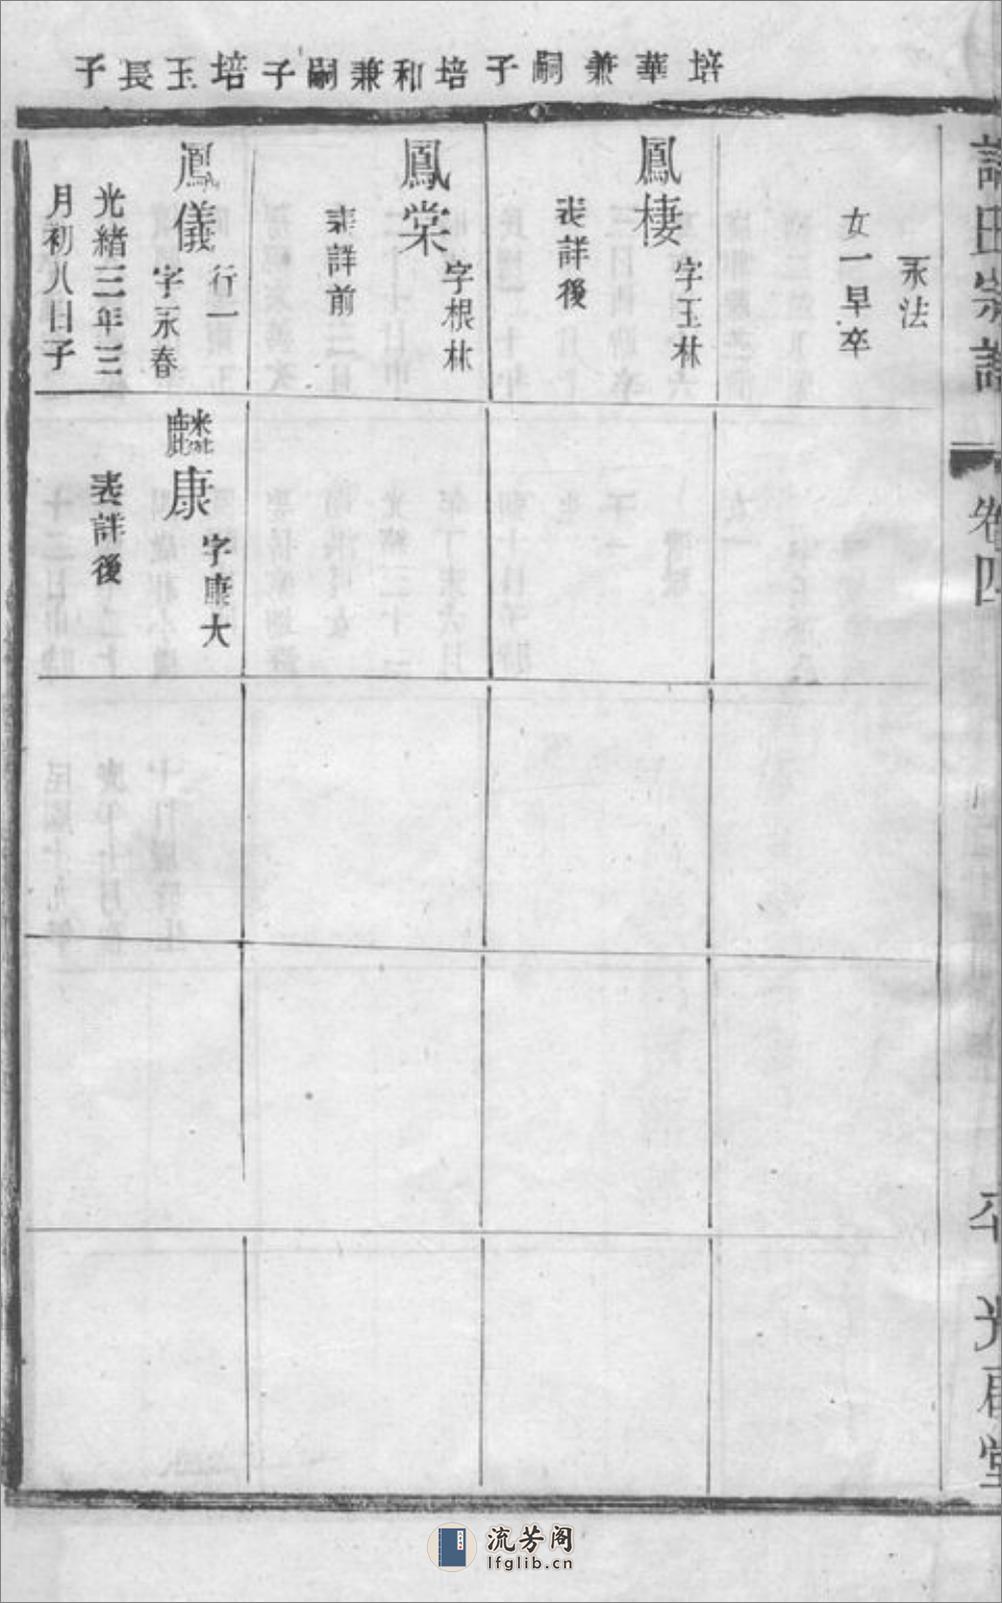 培華兼嗣子
培和兼嗣子
培玉長子
永法
女一早卒
鳳棲
字玉林
表詳後
鳳棠
字根林
表詳前
鳳儀
行一
字永春
光緒三年三
月初八日子
麟康
字康大
表詳後
氏宗譜
卷四
光啟堂
流芳阁
lfglib.cn